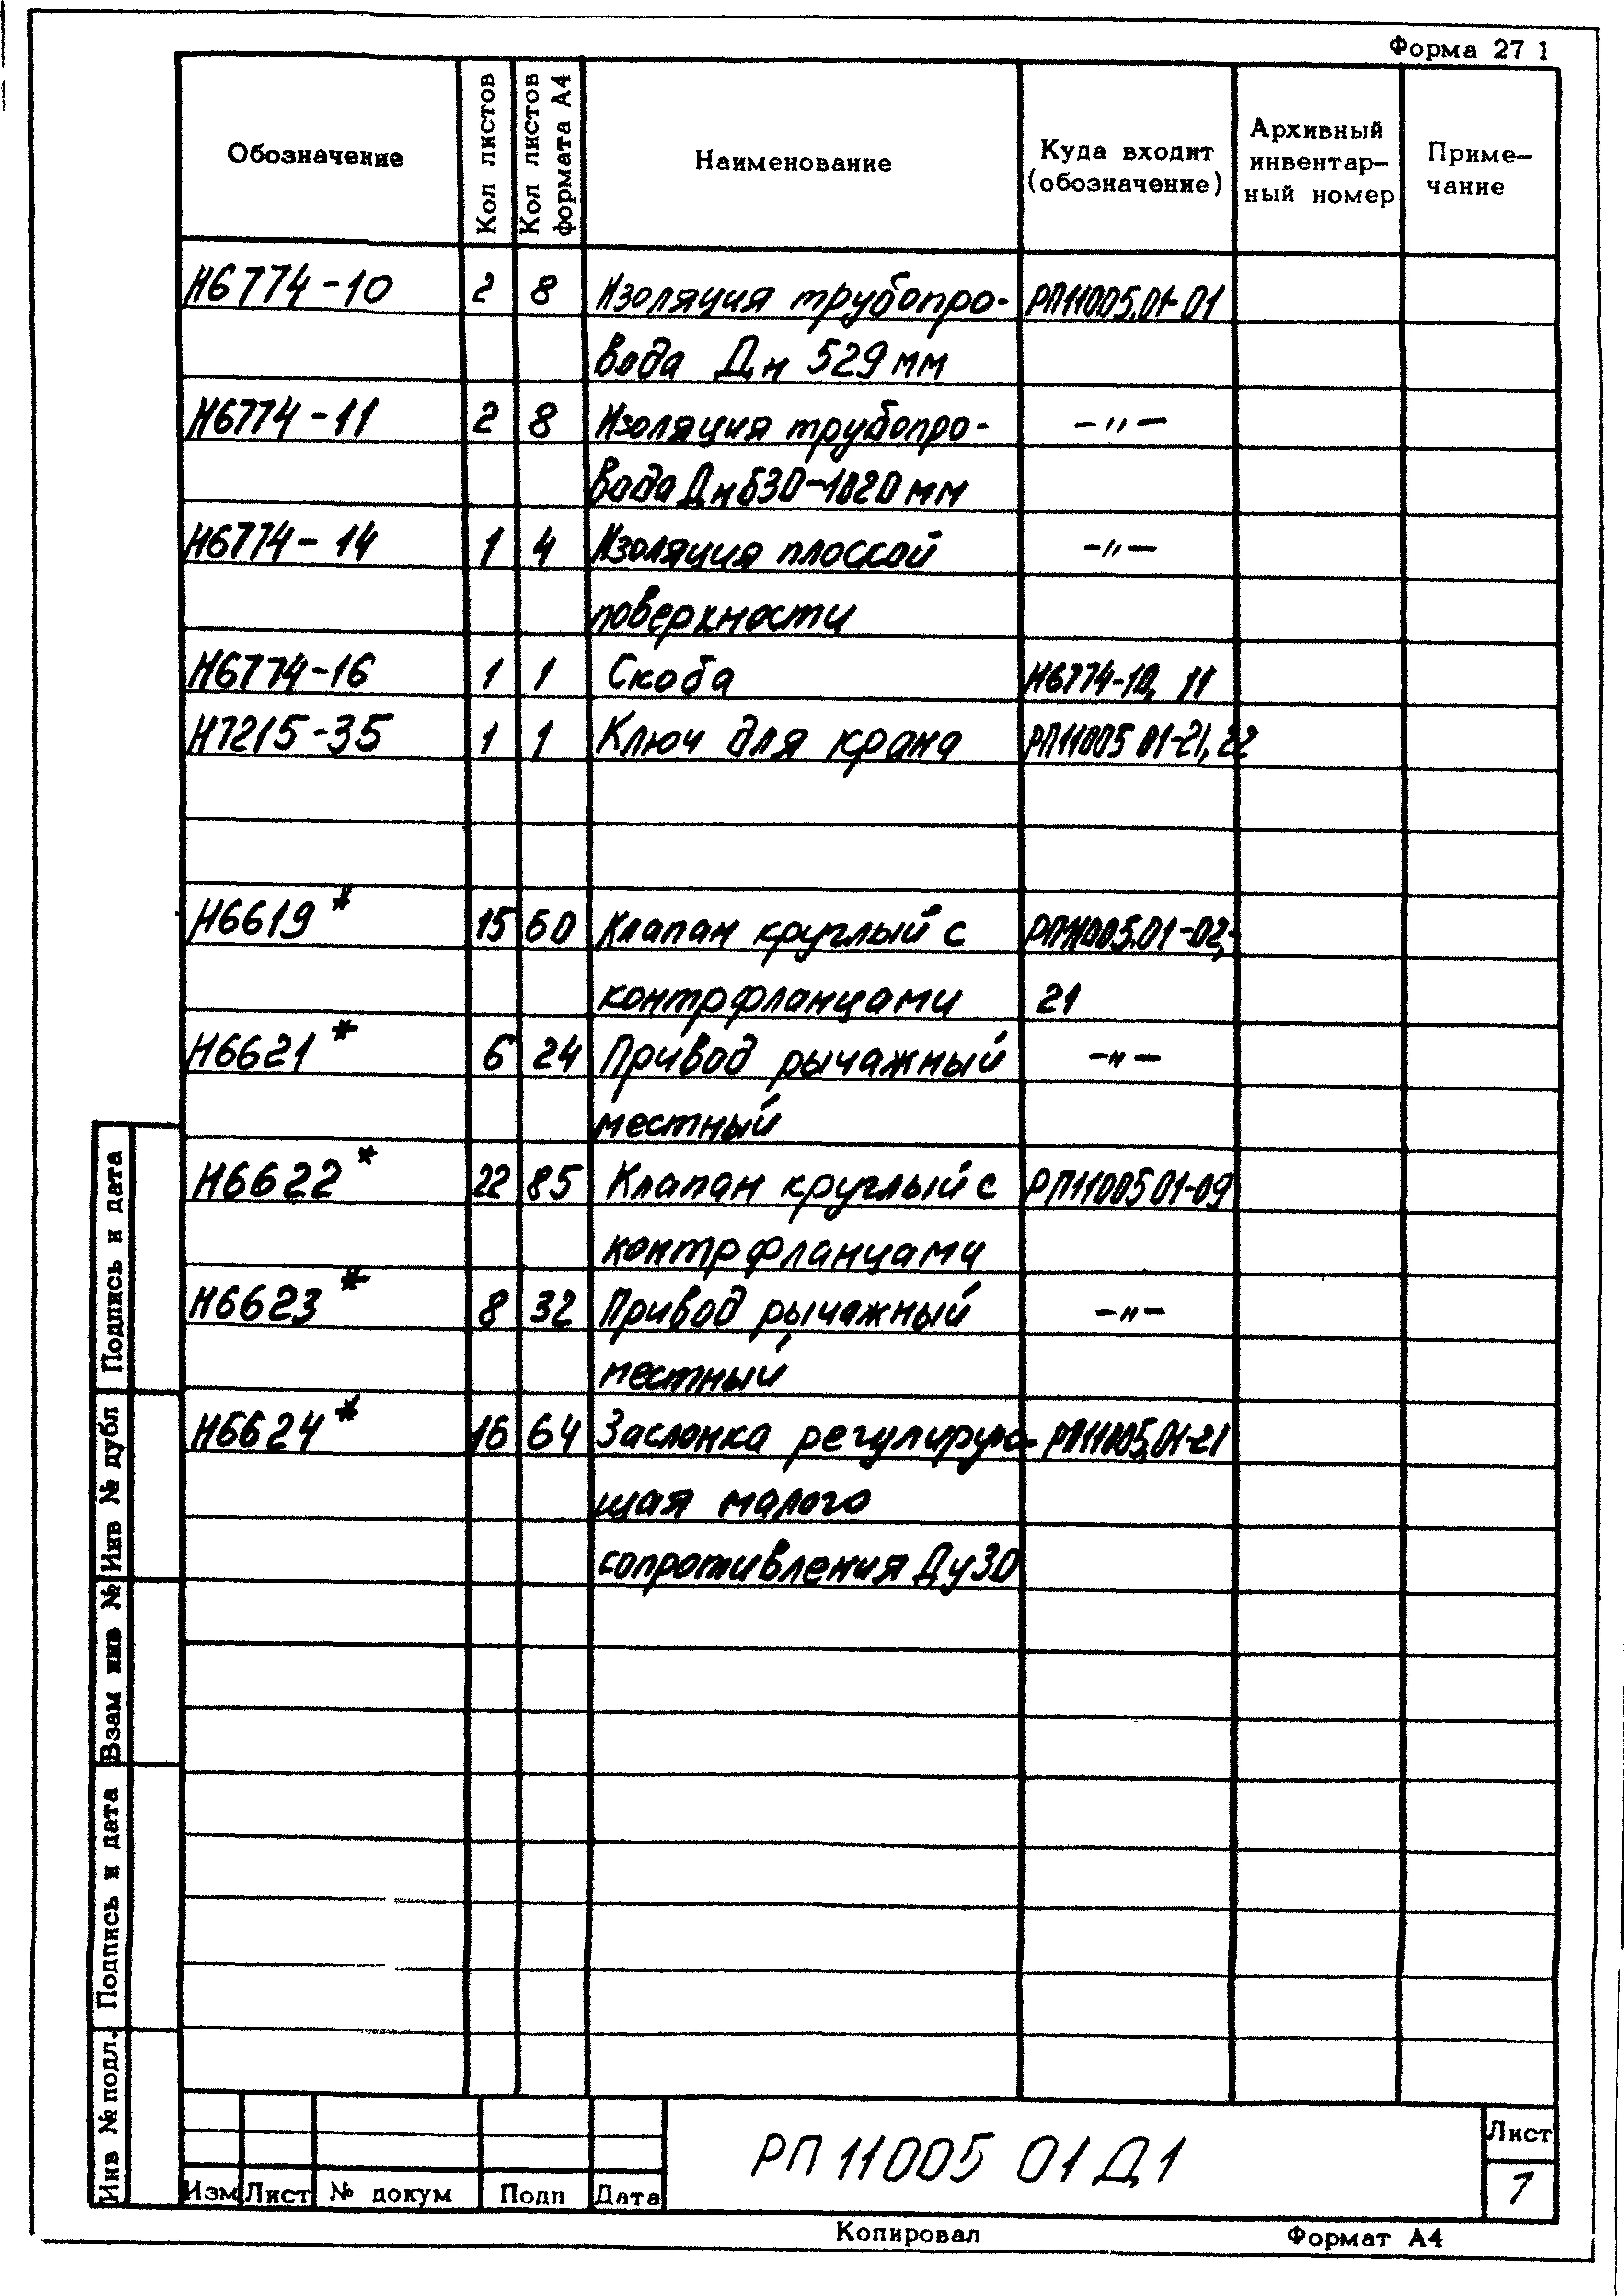 Форма 27 1
Обозначение | Кол листов | Кол листов формата А4 | Наименование | Куда входит (обозначение) | Архивный инвентар-ный номер | Приме-чание
Н6774-10 2 8 Изоляция трубопро- РП11005.01-01
вода Дн 529 мм
Н6774-11 2 8 Изоляция трубопро- -"-
вода Дн 630-1020 мм
Н6774-14 1 4 Изоляция плоской -"-
поверхности
Н6774-16 1 1 Скоба Н6774-10, 11
Н7215-35 1 1 Ключ для крана РП11005 01-21, 22
Н6619* 15 60 Клапан круглый с РП11005.01-02,
контрфланцами 21
Н6621* 6 24 Привод рычажный -"-
местный
Н6622* 22 85 Клапан круглый с РП11005 01-09
контрфланцами
Н6623* 8 32 Привод рычажный -"-
местный
Н6624* 16 64 Заслонка регулирую- РП11005.01-21
щая малого
сопротивления Ду30
Подпись и дата
Инв № дубл
Взам инв №
Подпись и дата
Инв № подл.
Изм Лист № докум Подп Дата
РП 11005 01 Д1
Лист
7
Копировал
Формат А4